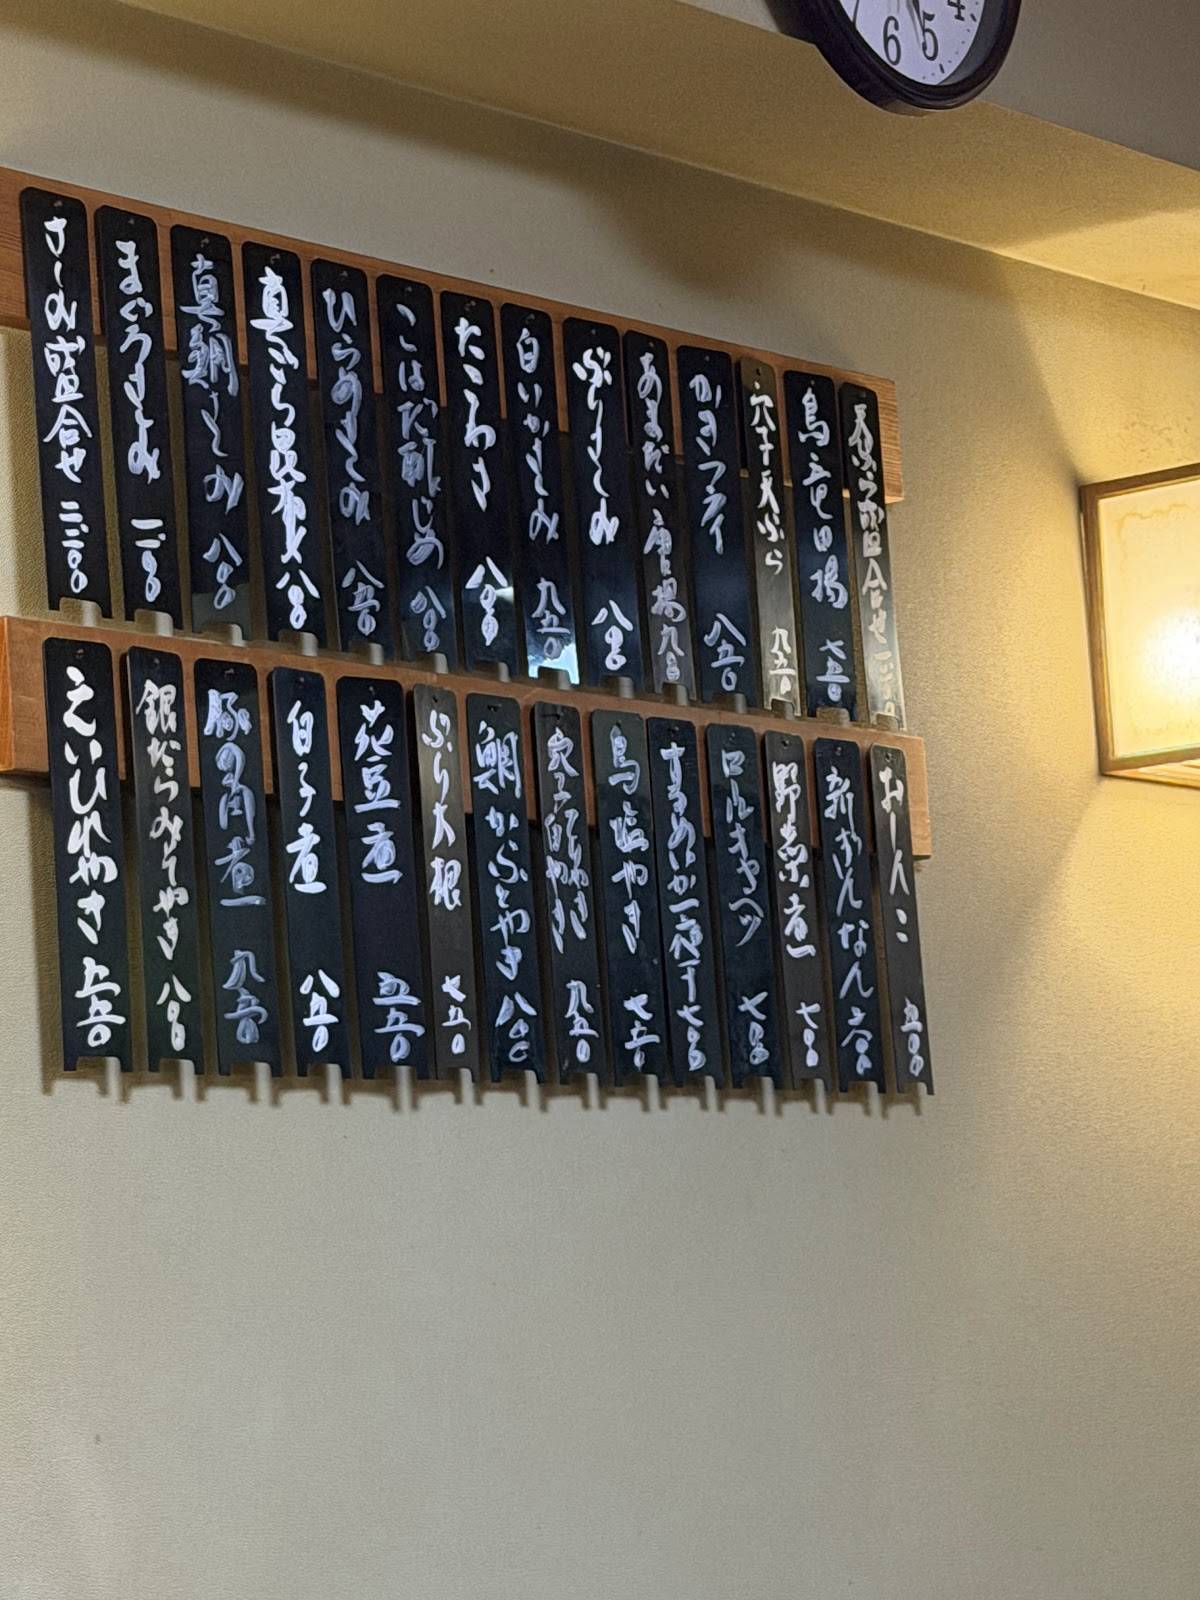 6 5 4
天ぷら盛合せ
鳥竜田揚 七五〇
穴子天ぷら 九五〇
かきフライ 八五〇
あまだい唐揚 九〇〇
ぶりさしみ 八〇〇
白いかさしみ 九五〇
たこわさ 八〇〇
こはだ酢じめ 八〇〇
ひらめさしみ 八五〇
真だら昆布〆 八〇〇
真鯛さしみ 八〇〇
まぐろさしみ 一、一〇〇
さしみ盛合せ
おしんこ 五〇〇
新ぎんなん 六〇〇
野菜煮 七〇〇
ロールキャベツ 七〇〇
するめいか一夜干 七〇〇
鳥塩やき 七五〇
穴子白やき 九五〇
鯛かぶとやき 八〇〇
ぶり大根 七五〇
花豆煮 五五〇
白子煮 八五〇
豚の角煮 九五〇
銀だらみそやき 八〇〇
えいひれやき 五五〇